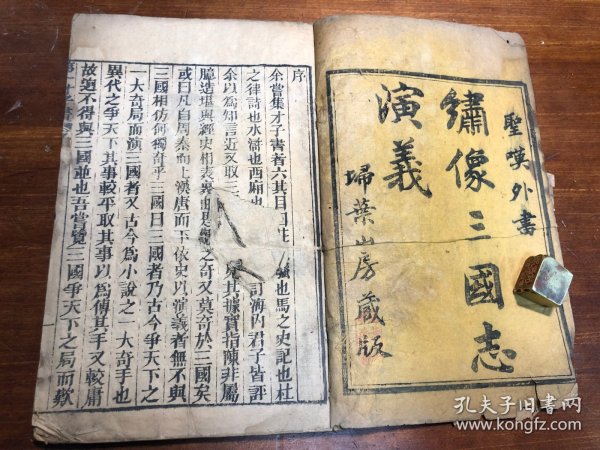 聖嘆外書
繡像三國志
演義
埽葉山房藏版
序
余嘗集才子書者六其目曰莊 騷也馬之史記也杜
之律詩也水滸也西廂也 訂海內君子皆評
余以為知言近又取三 見其據實指陳非屬
臆造堪與經史相表裏 之奇又莫奇於三國矣
或曰凡自周秦而上漢唐而下依史以演義者無不與
三國相仿何獨奇乎三國曰三國者乃古今爭天下之
一大奇局而演三國者又古今為小說之一大奇手也
異代之爭天下其事較平取其事以為傳其手又較庸
故迥不得與三國並也吾嘗覽三國爭天下之局而歎
孔夫子旧书网
www.kongfz.com